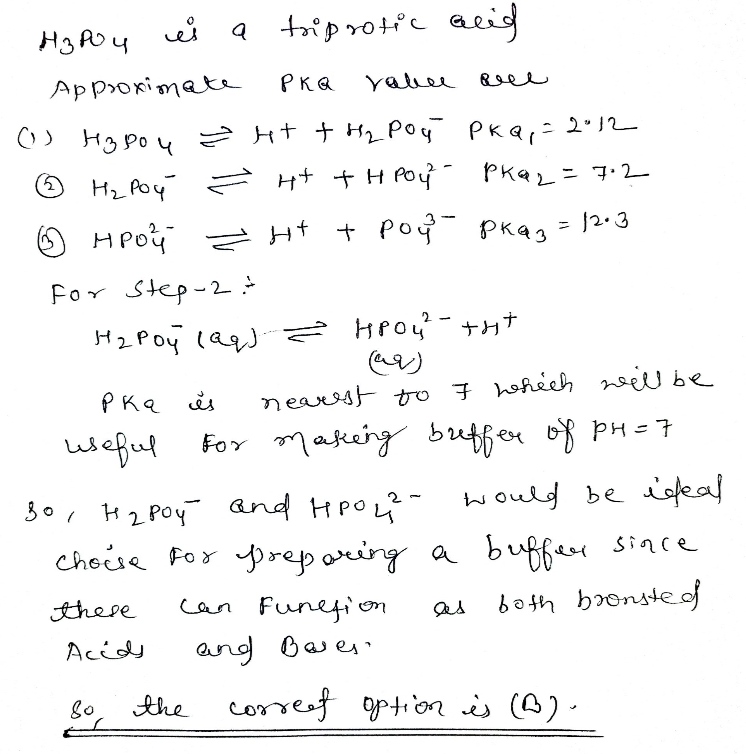 H3PO4 is a triprotic acid
Approximate PKa value are
(1) H3PO4 ⇌ H+ + H2PO4- PKa1 = 2.12
(2) H2PO4- ⇌ H+ + HPO4^2- PKa2 = 7.2
(3) HPO4^2- ⇌ H+ + PO4^3- PKa3 = 12.3
For Step-2 :-
H2PO4- (aq) ⇌ HPO4^2- + H+
(aq)
PKa is nearest to 7 which will be
useful For making buffer of PH = 7
So, H2PO4- and HPO4^2- would be ideal
choise For preparing a buffer since
these can Function as both bronsted
Acids and Bases.
So, the correct option is (B).